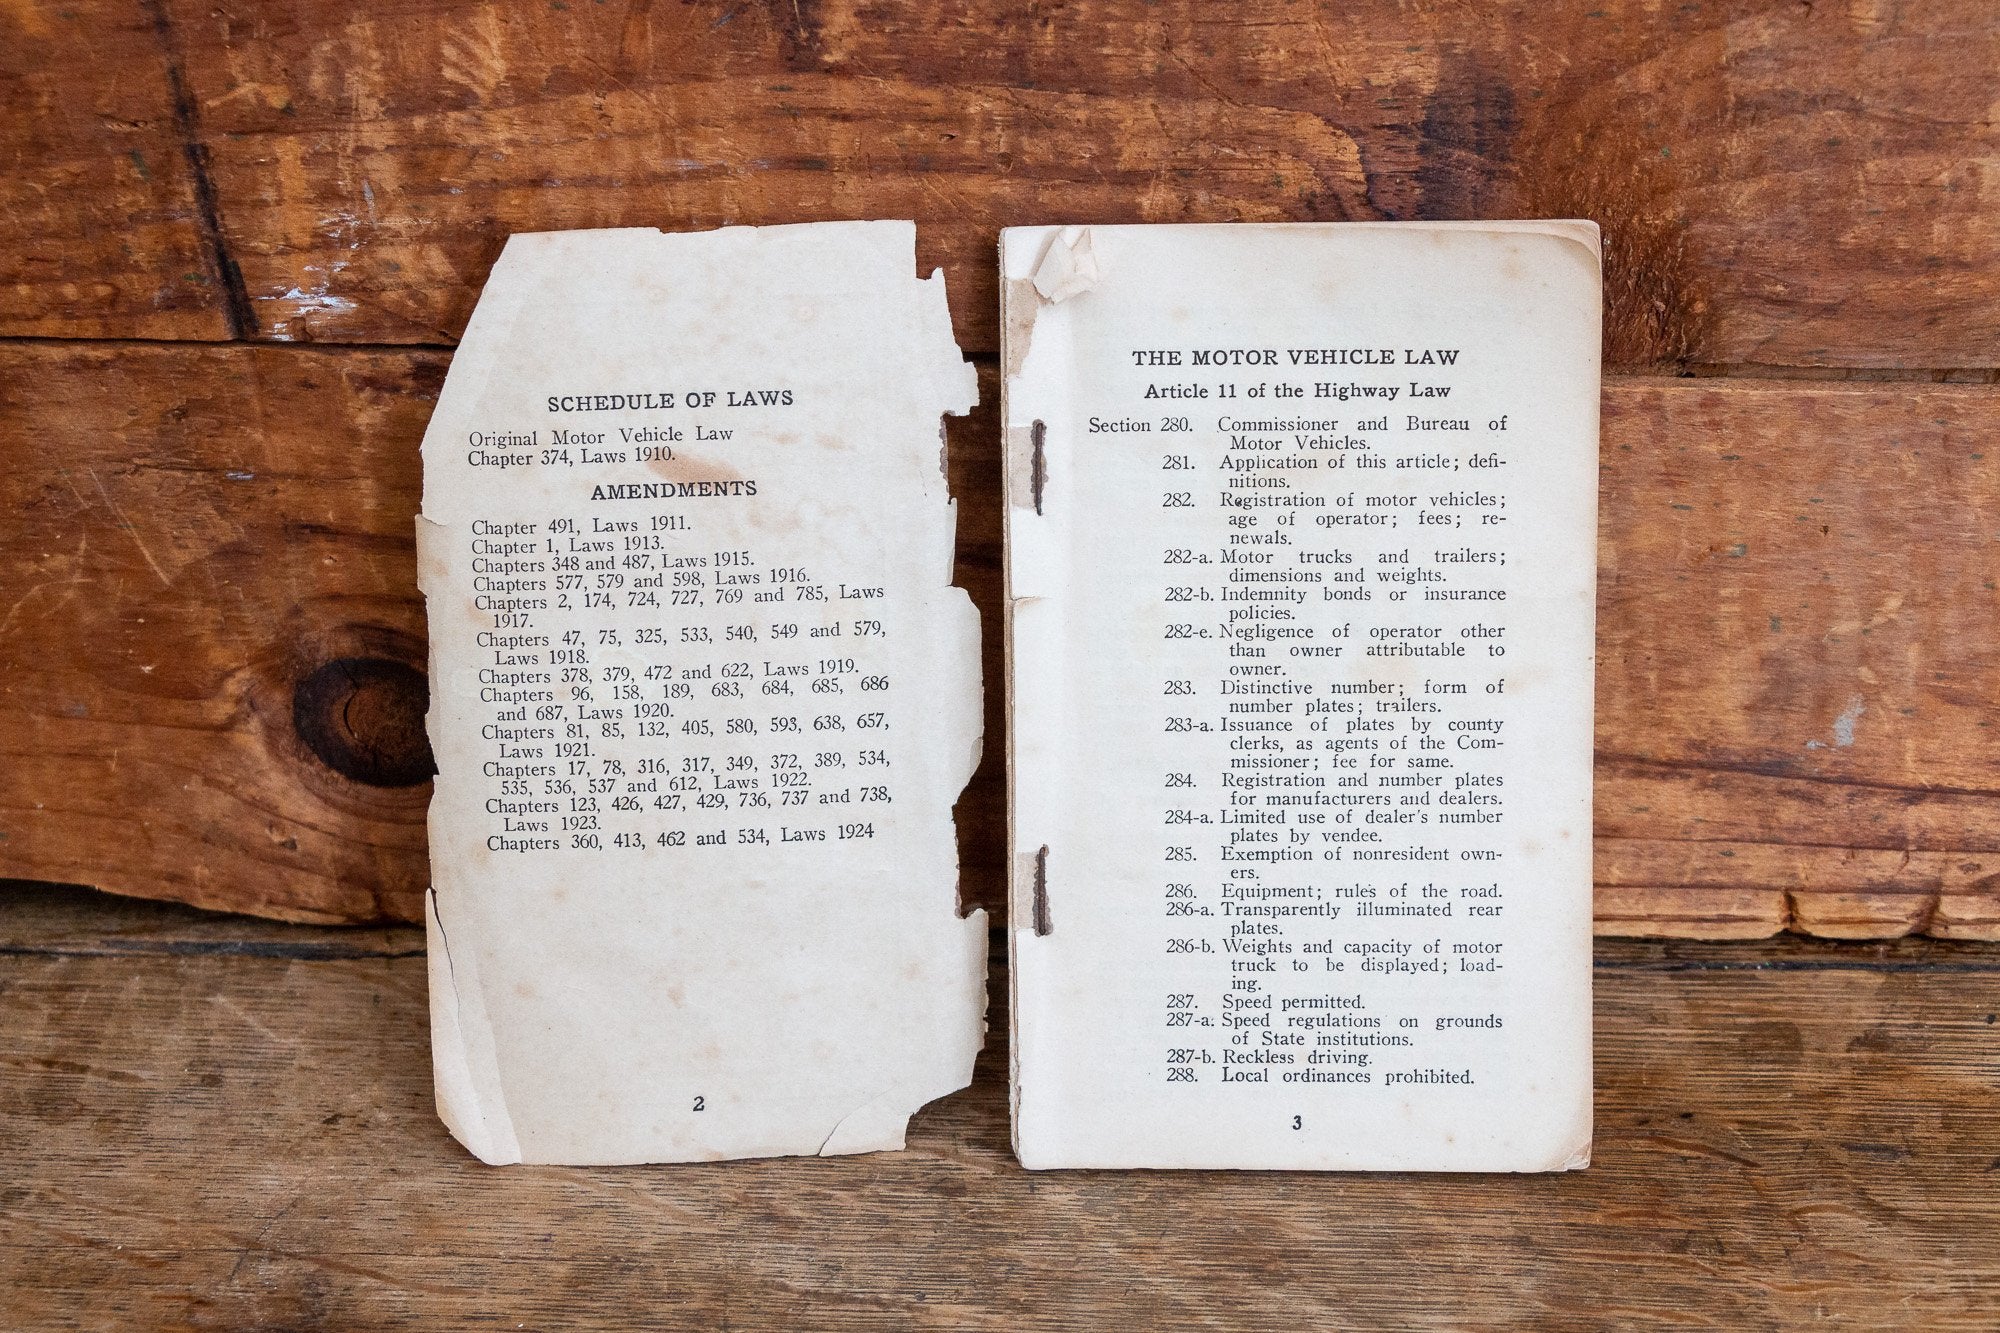 SCHEDULE OF LAWS
Original Motor Vehicle Law
Chapter 374, Laws 1910.
AMENDMENTS
Chapter 491, Laws 1911.
Chapter 1, Laws 1913.
Chapters 348 and 487, Laws 1915.
Chapters 577, 579 and 598, Laws 1916.
Chapters 2, 174, 724, 727, 769 and 785, Laws
1917.
Chapters 47, 75, 325, 533, 540, 549 and 579,
Laws 1918.
Chapters 378, 379, 472 and 622, Laws 1919.
Chapters 96, 158, 189, 683, 684, 685, 686
and 687, Laws 1920.
Chapters 81, 85, 132, 405, 580, 593, 638, 657,
Laws 1921.
Chapters 17, 78, 316, 317, 349, 372, 389, 534,
535, 536, 537 and 612, Laws 1922.
Chapters 123, 426, 427, 429, 736, 737 and 738,
Laws 1923.
Chapters 360, 413, 462 and 534, Laws 1924
2
THE MOTOR VEHICLE LAW
Article 11 of the Highway Law
Section 280. Commissioner and Bureau of
Motor Vehicles.
281. Application of this article; defi-
nitions.
282. Registration of motor vehicles;
age of operator; fees; re-
newals.
282-a. Motor trucks and trailers;
dimensions and weights.
282-b. Indemnity bonds or insurance
policies.
282-e. Negligence of operator other
than owner attributable to
owner.
283. Distinctive number; form of
number plates; trailers.
283-a. Issuance of plates by county
clerks, as agents of the Com-
missioner; fee for same.
284. Registration and number plates
for manufacturers and dealers.
284-a. Limited use of dealer's number
plates by vendee.
285. Exemption of nonresident own-
ers.
286. Equipment; rules of the road.
286-a. Transparently illuminated rear
plates.
286-b. Weights and capacity of motor
truck to be displayed; load-
ing.
287. Speed permitted.
287-a. Speed regulations on grounds
of State institutions.
287-b. Reckless driving.
288. Local ordinances prohibited.
3